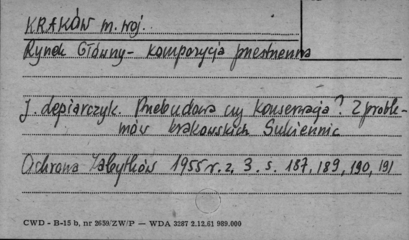 KRAKÓW m. woj.
Rynek Główny - kompozycja przestrzenna
J. Lepiarczyk. Przebudowa czy konserwacja? Z proble-
mów krakowskich Sukiennic
Ochrona Zabytków 1955 r. z. 3. s. 187, 189, 190, 191
CWD - B-15 b, nr 2659/ZW/P — WDA 3287 2.12.61 989.000